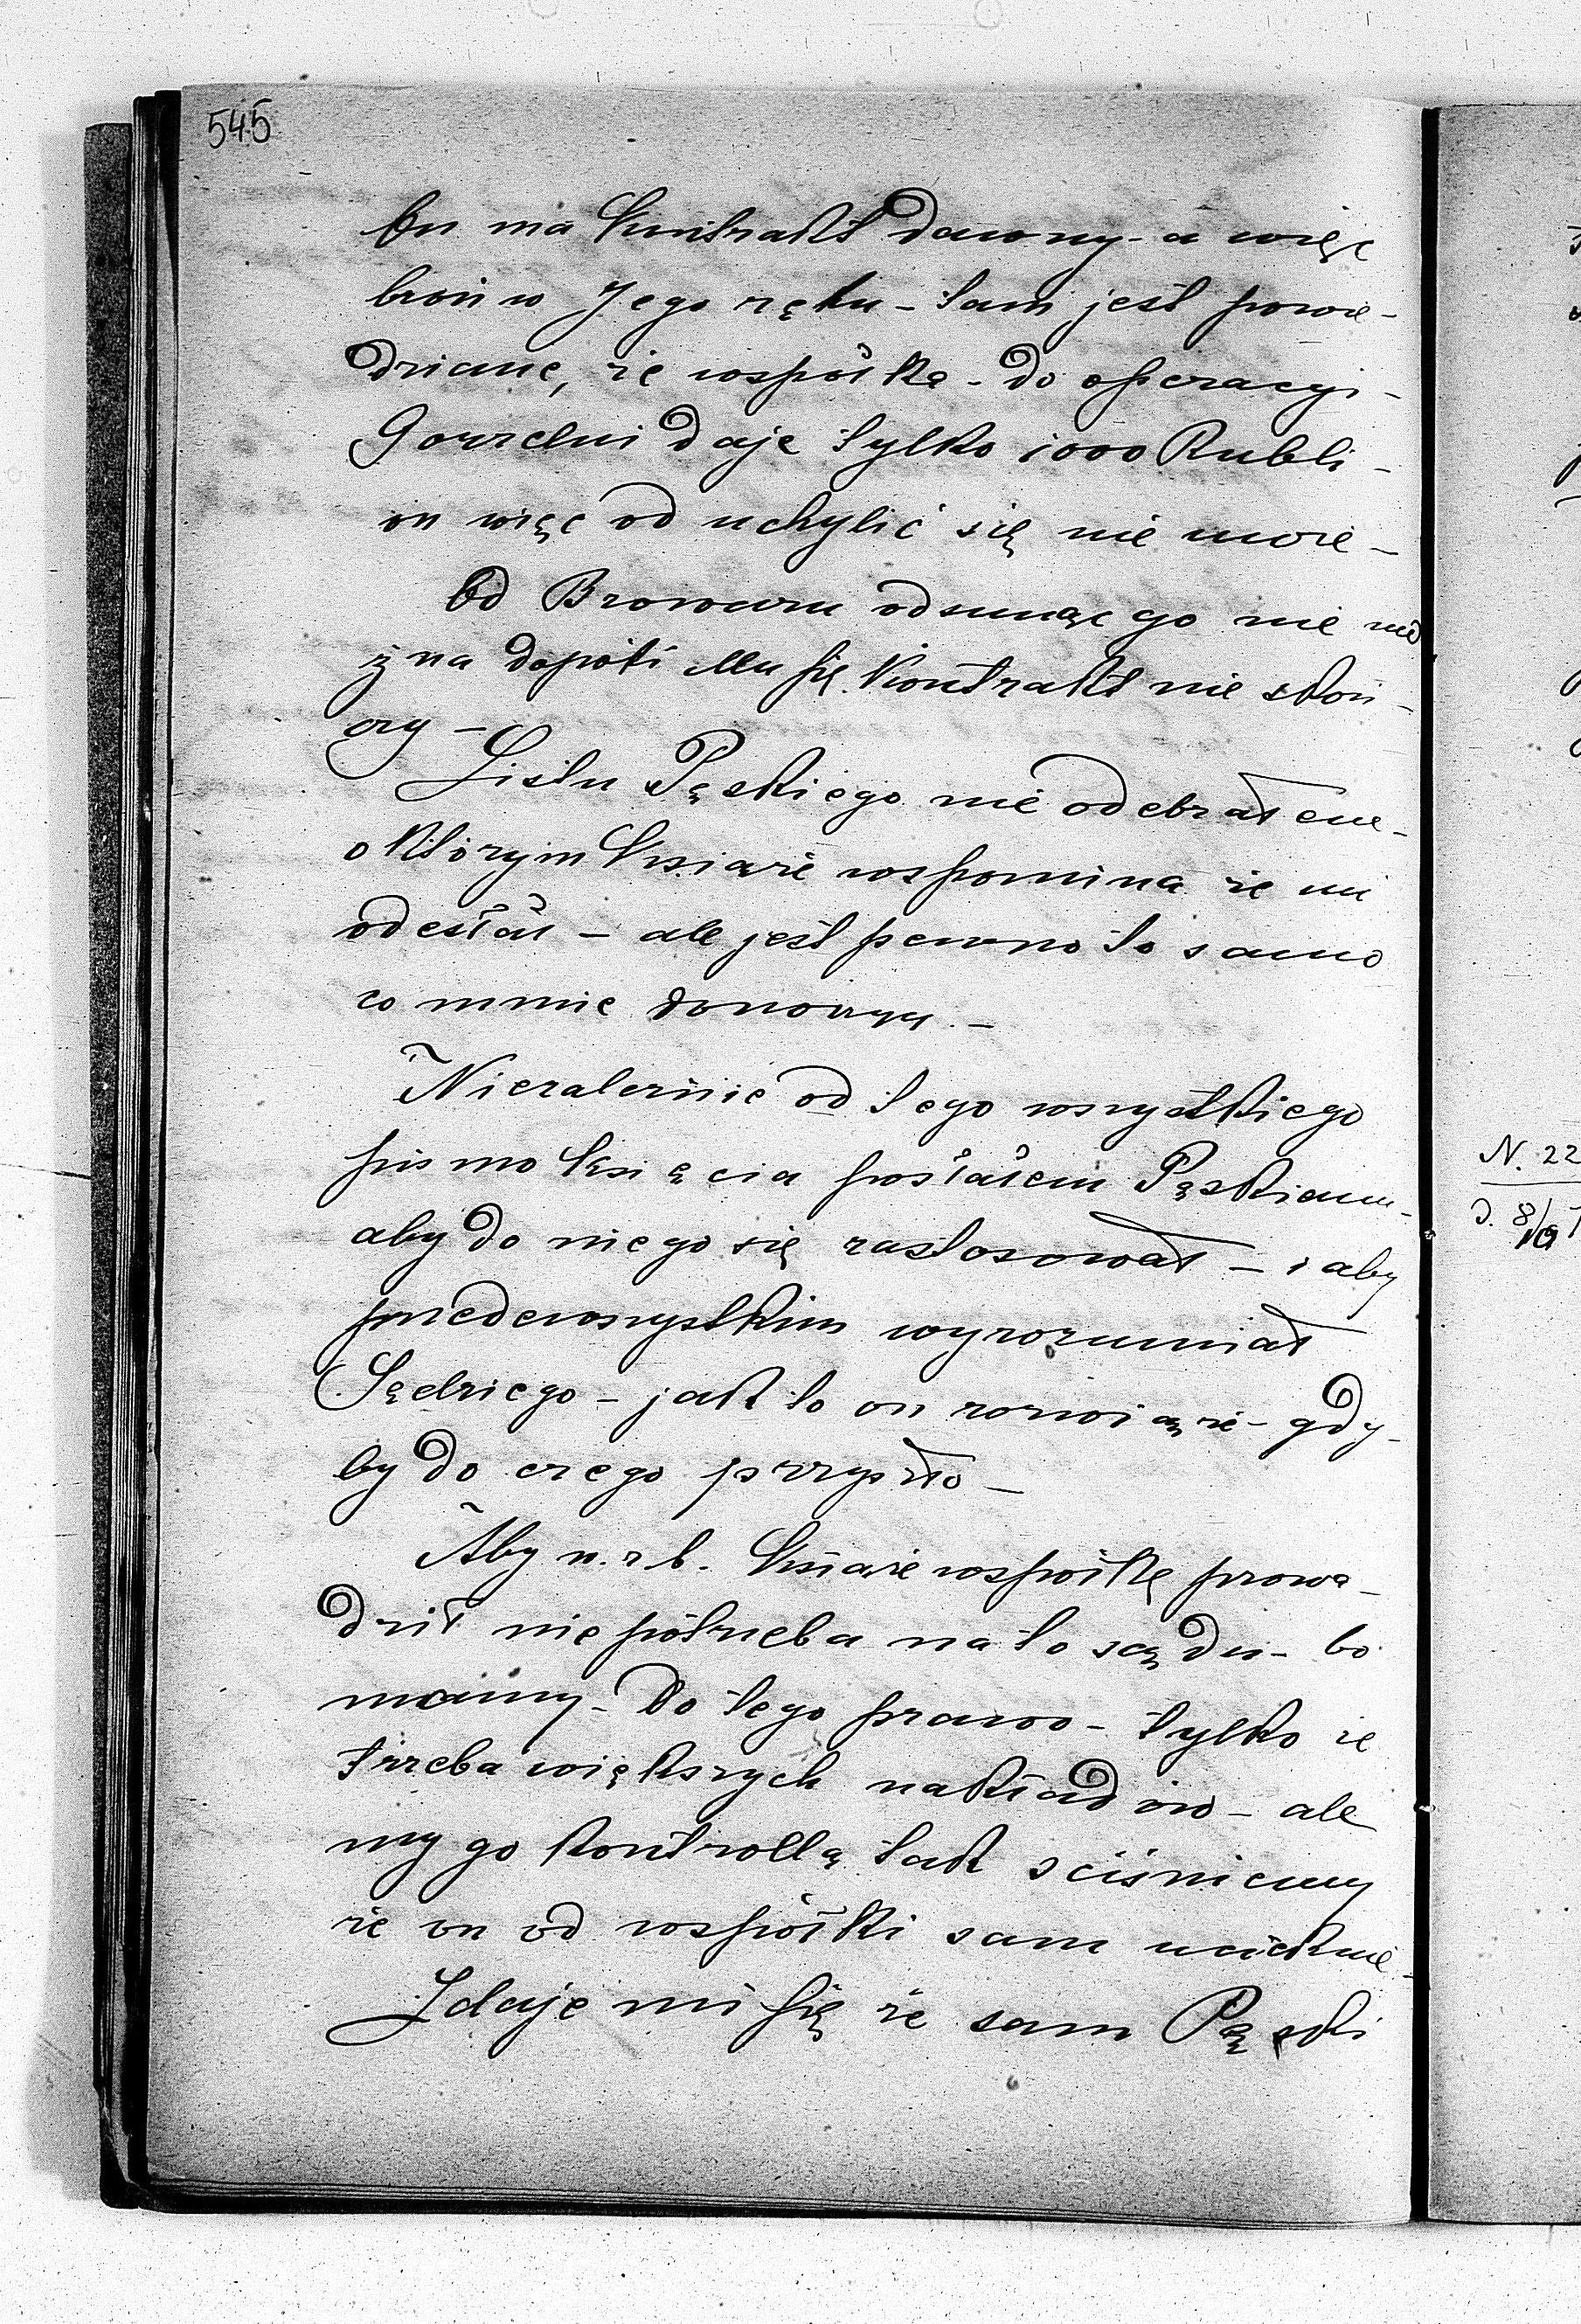 545
On ma kontrakt dawny - a więc
broń w Jego ręku - tam jest powie-
dziane, że wspólka - do operacyi -
Gorzelni daje tylko 1000 Rubli -
on więc od uchylić się nie może -
Od Browaru odsunąć go nie mo
żna dopóki Mu się Kontrakt nie skoń-
czy -
Listu Pąskiego nie odebrałem -
o którym Książe wspomina że mi
odesłał - ale jest pewno to samo
co mnie donoszą. -
Niezależnie od tego wszystkiego
pismo Księcia posłałem Pąskiemu -
aby do niego się zastosował - i aby
przedewszystkim wyrozumiał
Sędziego - jak to on rozwiąże - gdy-
by do czego przyszło -
Aby n. r. b. Książe wspólkę prowa-
dził nie potrzeba na to sądu - bo
mamy - Do tego prawo - tylko że
trzeba większych nakładów - ale
my go kontrollą tak ściśniemy
że on od wspólki sam ucieknie -
Zdaje mi się że sam Pąski
N. 22
D. 8/19